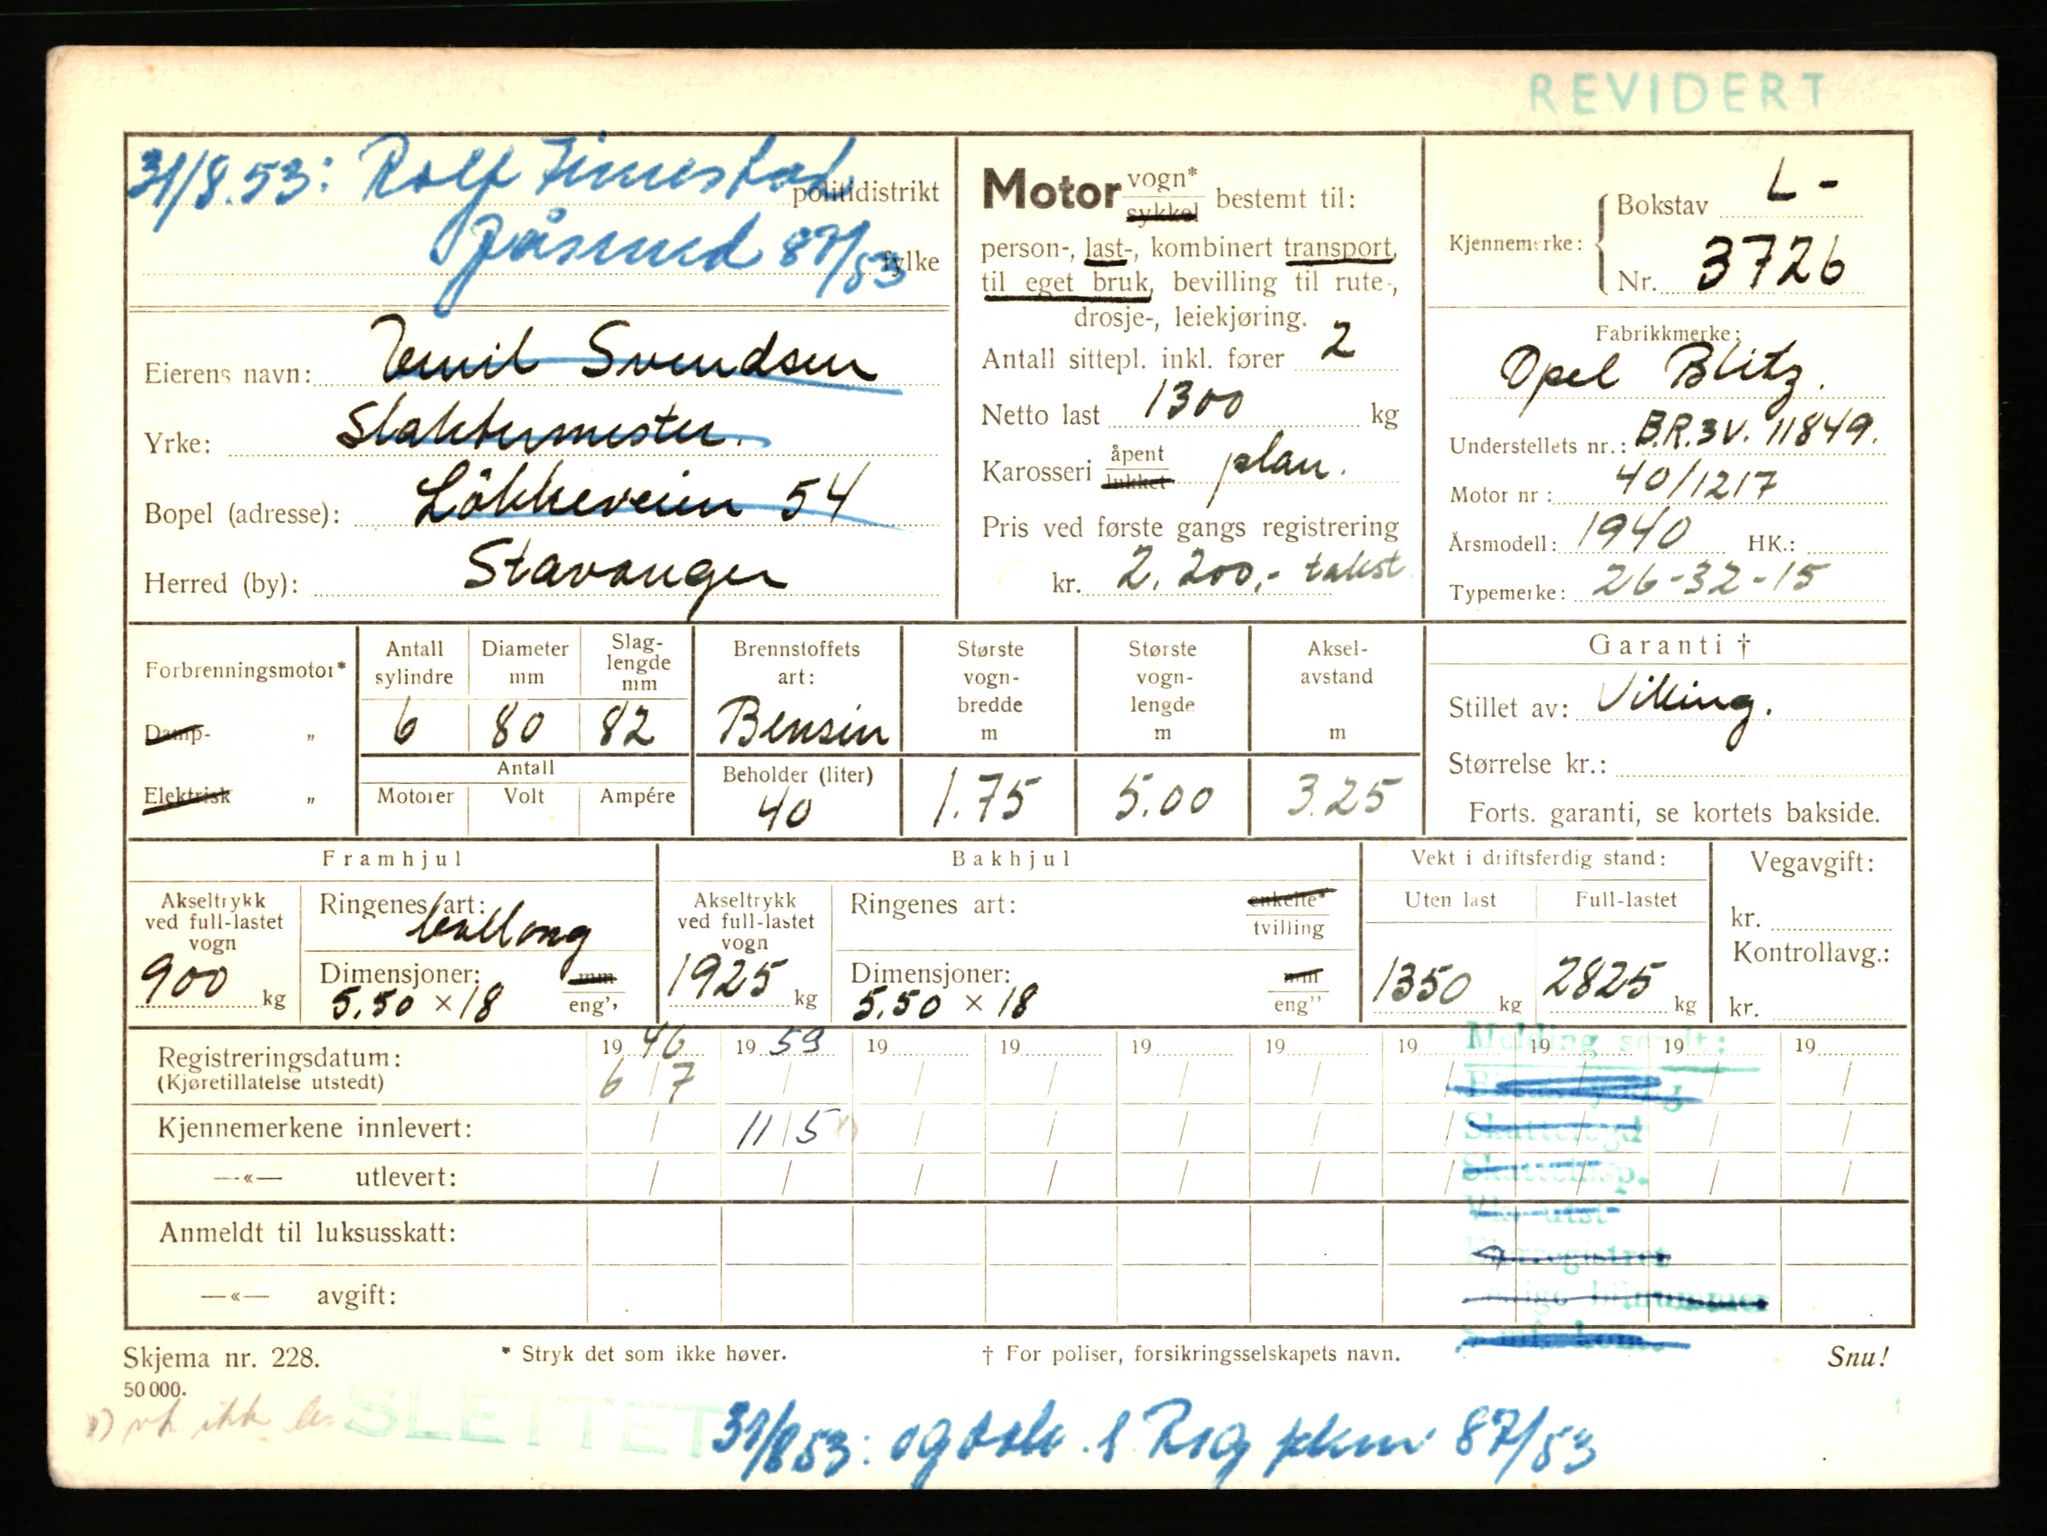 REVIDERT
31/8.53: Rolf
politidistrikt
87/53
fylke
Eierens navn: Emil Svendsen
Yrke: Slaktermester.
Bopel (adresse): Lökkeveien 54
Herred (by): Stavanger
Motor vogn* sykkel bestemt til:
person-, last-, kombinert transport,
til eget bruk, bevilling til rute-,
drosje-, leiekjøring.
Antall sittepl. inkl. fører 2
Netto last 1300 kg
Karosseri åpent lukket plan.
Pris ved første gangs registrering
kr. 2.200,- takst
Kjennemerke: Bokstav L-
Nr. 3726
Fabrikkmerke:
Opel Blitz.
Understellets nr.: B.R.3V. 11849.
Motor nr: 40/1217
Årsmodell: 1940 HK.:
Typemerke: 26-32-15
Forbrenningsmotor*
Damp- „
Elektrisk „
Antall sylindre
6
Diameter mm
80
Slaglengde mm
82
Antall
Motorer Volt Ampére
Brennstoffets art:
Bensin
Beholder (liter)
40
Største vognbredde m
1.75
Største vognlengde m
5.00
Akselavstand m
3.25
Garanti †
Stillet av: Viking.
Størrelse kr.:
Forts. garanti, se kortets bakside.
Framhjul
Akseltrykk ved full-lastet vogn
900 kg
Ringenes art: ballong
Dimensjoner: mm
5.50 × 18 eng''
Bakhjul
Akseltrykk ved full-lastet vogn
1925 kg
Ringenes art: enkelte* tvilling
Dimensjoner: mm
5.50 × 18 eng''
Vekt i driftsferdig stand:
Uten last Full-lastet
1350 kg 2825 kg
Vegavgift:
kr.
Kontrollavg.:
kr.
Registreringsdatum: 19 46 19 59 19 19 19 19 19 19 19 19
(Kjøretillatelse utstedt) 6/7
Kjennemerkene innlevert: 11/5
—«— utlevert:
Anmeldt til luksusskatt:
—«— avgift:
Melding sendt:
Skatteinsp.
Skjema nr. 228.
50 000.
* Stryk det som ikke høver.
† For poliser, forsikringsselskapets navn.
Snu!
SLETTET
31/8 53: 87/53